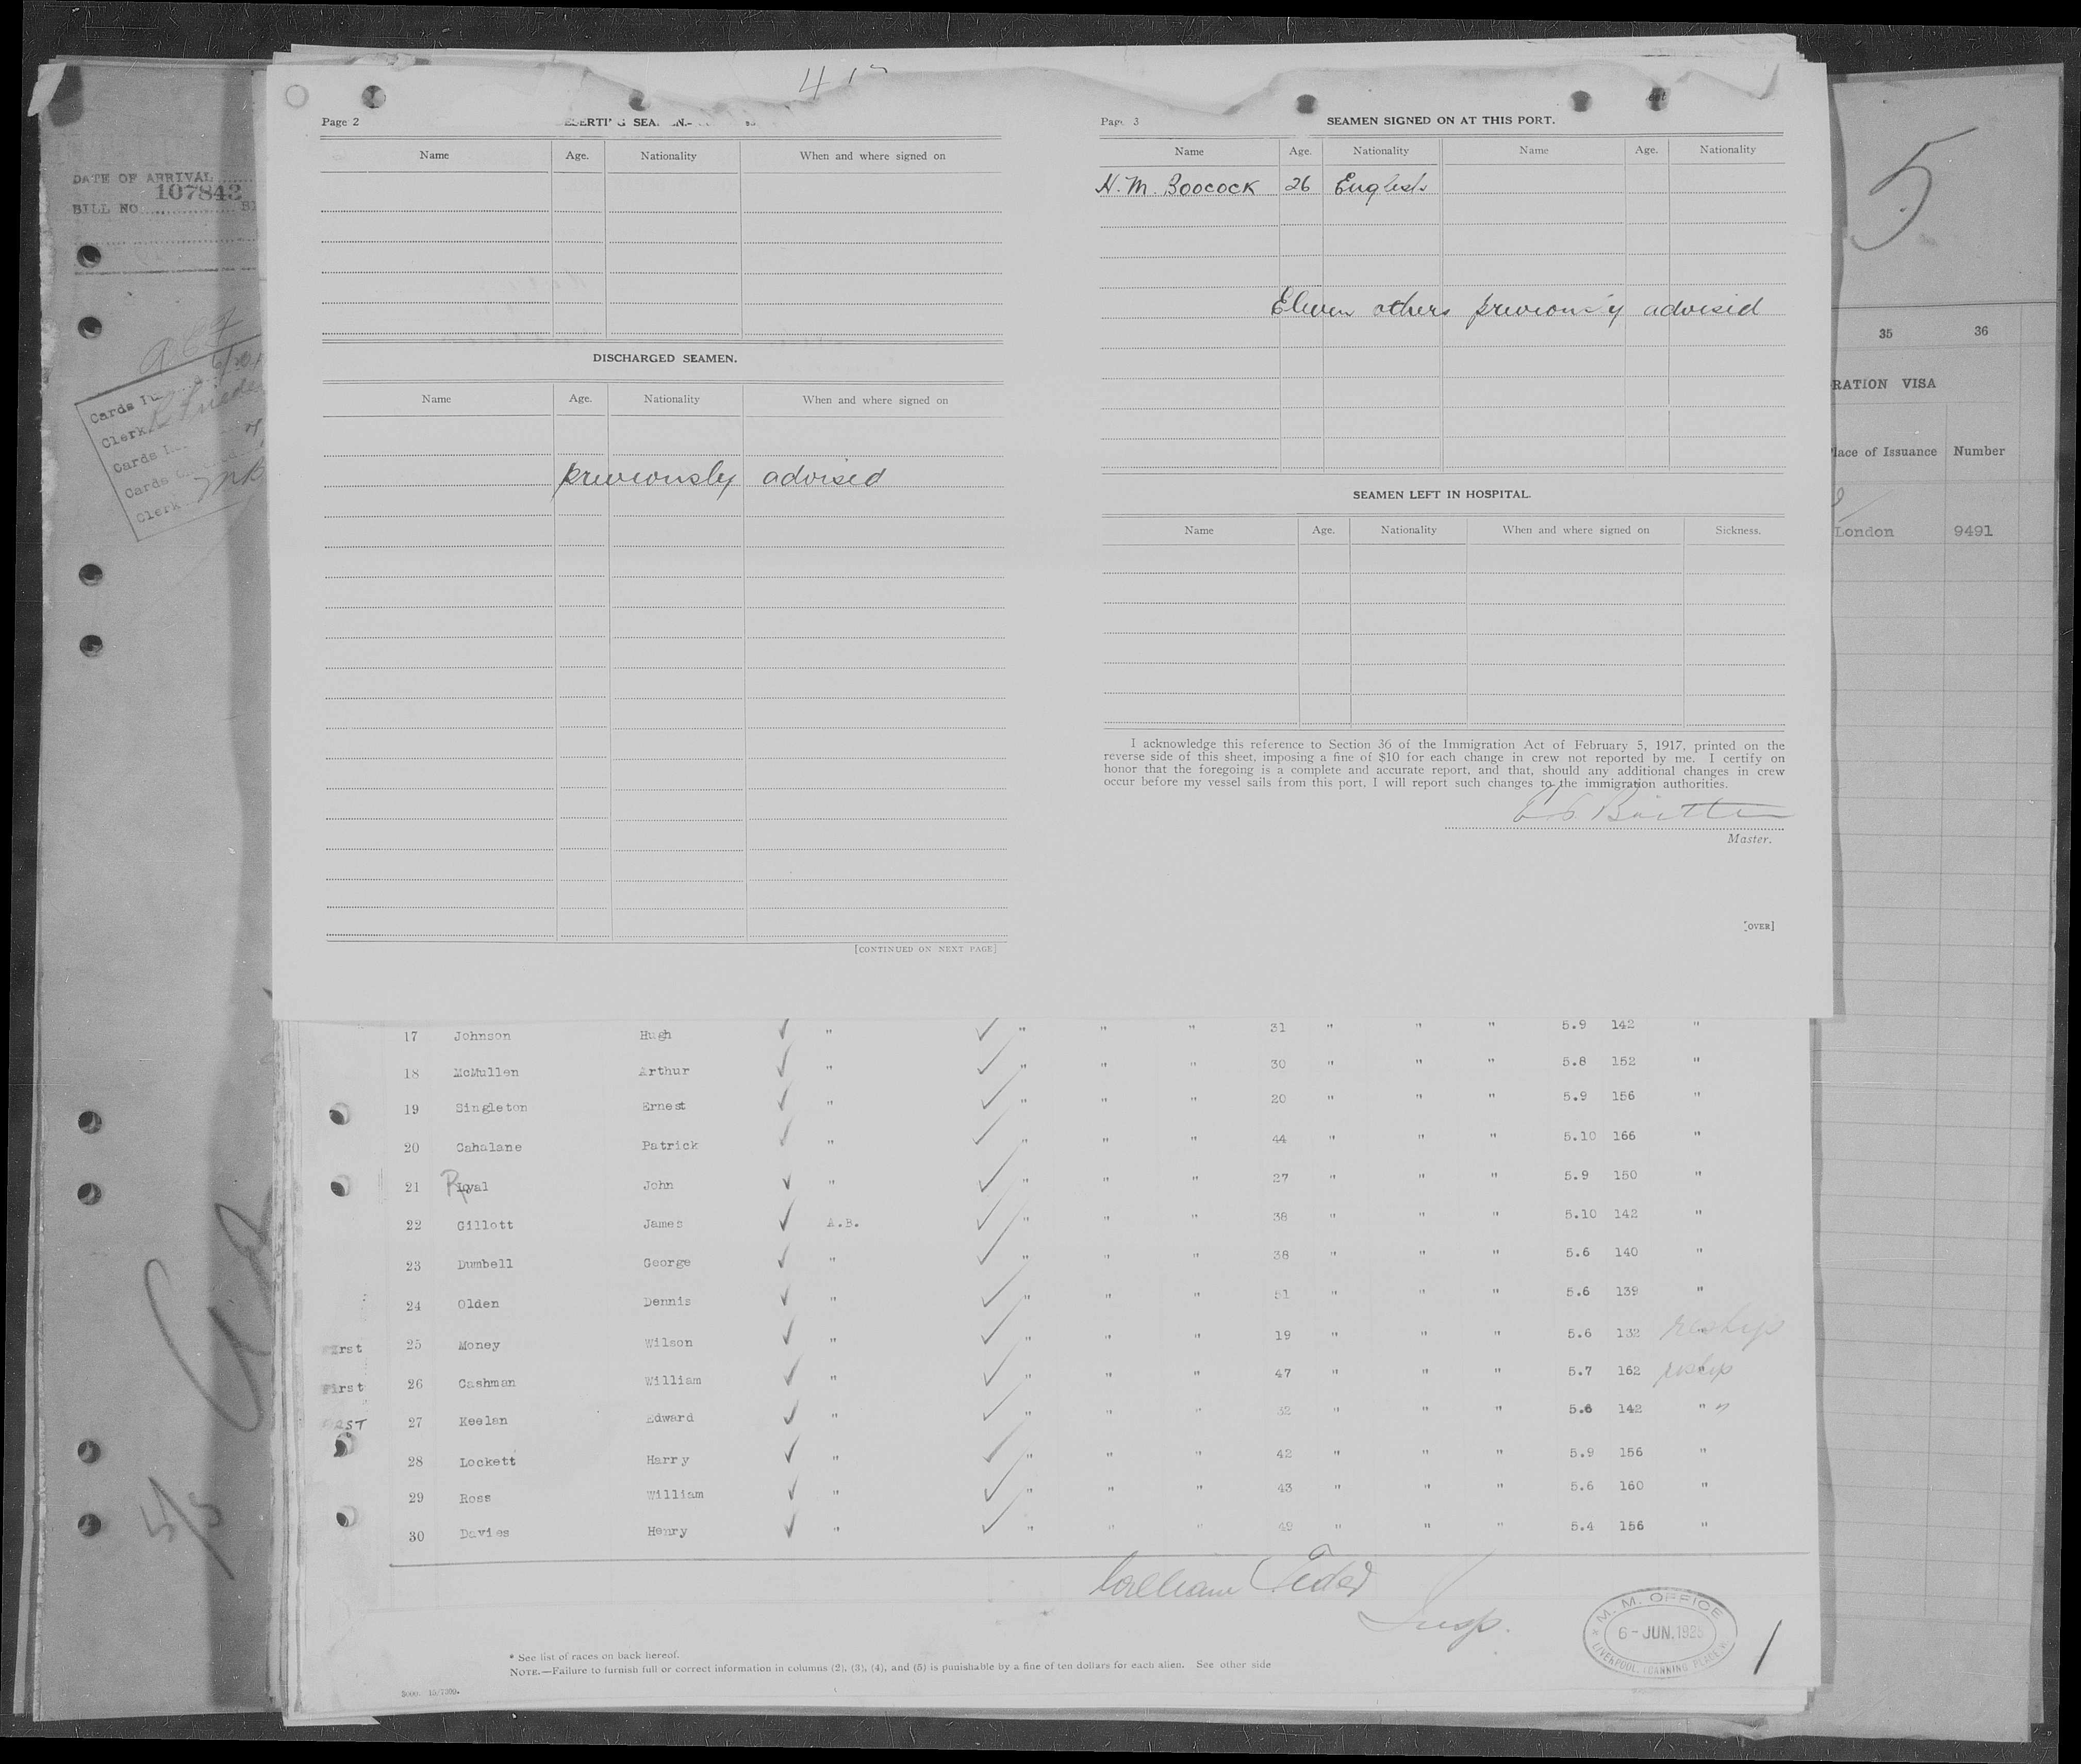 Page 2
Name Age. Nationality When and where signed on
DISCHARGED SEAMEN.
Name Age. Nationality When and where signed on
previously advised
[CONTINUED ON NEXT PAGE]
Page 3 SEAMEN SIGNED ON AT THIS PORT.
Name Age. Nationality Name Age. Nationality
H. M. Boocock 26 English
Eleven others previously advised
SEAMEN LEFT IN HOSPITAL.
Name Age. Nationality When and where signed on Sickness.
I acknowledge this reference to Section 36 of the Immigration Act of February 5, 1917, printed on the
reverse side of this sheet, imposing a fine of $10 for each change in crew not reported by me. I certify on
honor that the foregoing is a complete and accurate report, and that, should any additional changes in crew
occur before my vessel sails from this port, I will report such changes to the immigration authorities.
Master.
[OVER]
DATE OF ARRIVAL
107843
BILL NO
Cards
Clerk
Cards
Cards
Clerk
5
35 36
RATION VISA
lace of Issuance Number
London 9491
17 Johnson Hugh " " " " 31 " " " 5.9 142 "
18 McMullen Arthur " " " " 30 " " " 5.8 152 "
19 Singleton Ernest " " " " 20 " " " 5.9 156 "
20 Cahalane Patrick " " " " 44 " " " 5.10 166 "
21 Ryval John " " " " 27 " " " 5.9 150 "
22 Gillott James A.B. " " " 38 " " " 5.10 142 "
23 Dumbell George " " " " 38 " " " 5.6 140 "
24 Olden Dennis " " " " 51 " " " 5.6 139 "
First 25 Money Wilson " " " " 19 " " " 5.6 132 reship
First 26 Cashman William " " " " 47 " " " 5.7 162 " reship
27 Keelan Edward " " " " 32 " " " 5.6 142 " "
28 Lockett Harry " " " " 42 " " " 5.9 156 "
29 Ross William " " " " 43 " " " 5.6 160 "
30 Davies Henry " " " " 49 " " " 5.4 156 "
William
Insp.
M. M. OFFICE
6-JUN.1925
LIVERPOOL (CANNING PLACE)
* See list of races on back hereof.
NOTE.—Failure to furnish full or correct information in columns (2), (3), (4), and (5) is punishable by a fine of ten dollars for each alien. See other side